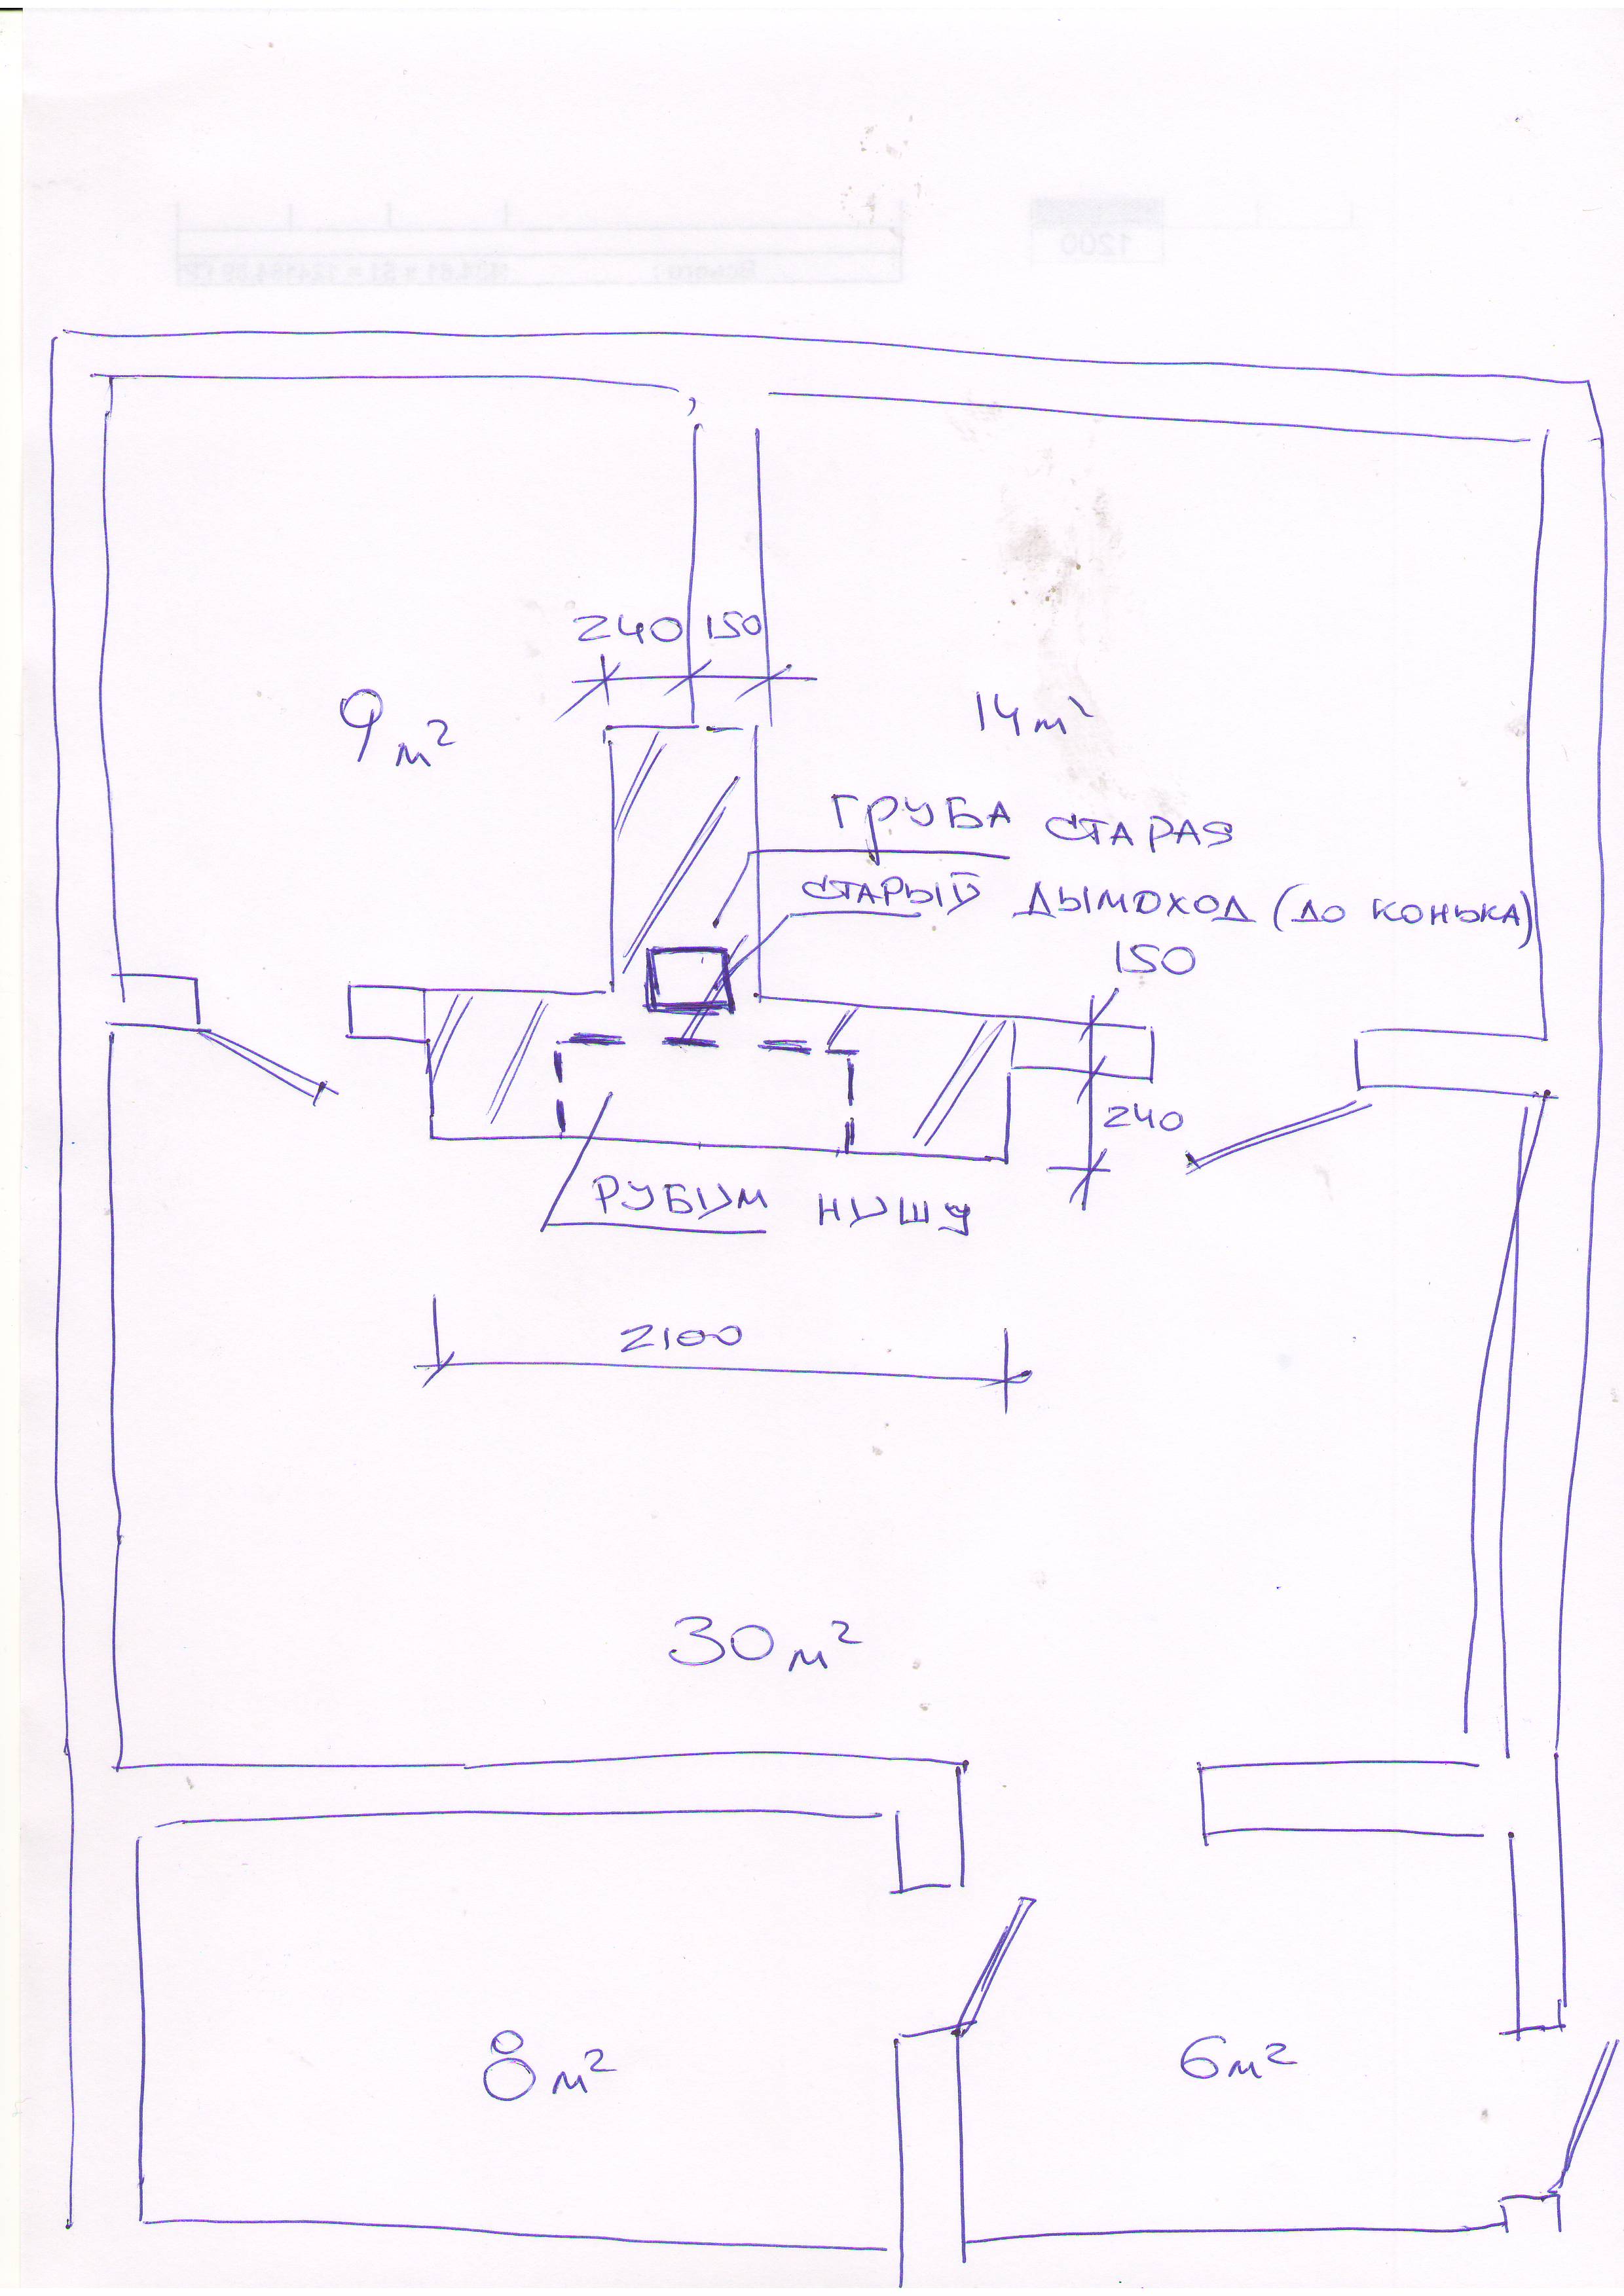 240 150
9 м²
14 м²
ГРУБА СТАРАЯ
СТАРЫЙ ДЫМОХОД (ДО КОНЬКА)
150
240
РУБИМ НИШУ
2100
30 м²
8 м²
6 м²
1200